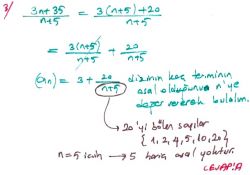 3/ 3n+35/n+5 = 3(n+5)+20/n+5
= 3(n+5)/n+5 + 20/n+5
(an) = 3 + 20/n+5 dizinin kaç teriminin
asal olduğunu n'ye
değer vererek bulalım.
20'yi bölen sayılar
{1, 2, 4, 5, 10, 20}
n=5 için → 5 hariç asal yoktur.
CEVAP A